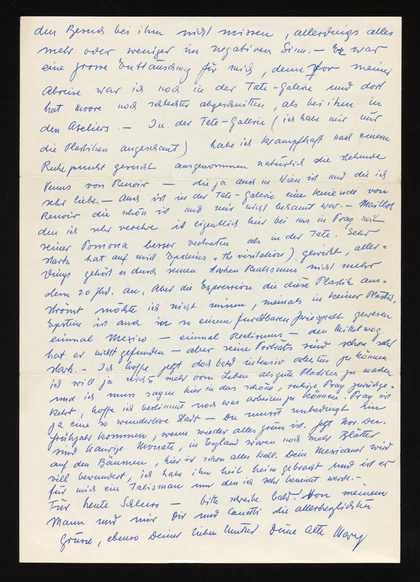 den Besuch bei ihm nicht missen, allerdings alles
mehr oder weniger im negativen Sinn. — Es war
eine grosse Enttäuschung für mich, denn vor meiner
Abreise war ich noch in der Tate-Galerie und dort
hat Moore noch schlechter abgeschnitten, als bei ihm in
den Ateliers. — In der Tate-Galerie (ich habe mir nur
die Plastiken angeschaut) habe ich krampfhaft nach einem
Ruhepunkt gesucht ausgenommen natürlich die stehende
Venus von Renoir — die ja auch in Wien ist und die ich
sehr liebe — Auch ist in der Tate-Galerie eine kniende von
Renoir die schön ist und mir nicht bekannt war. — Maillol
den ich sehr verehre ist eigentlich hier bei uns in Prag mit
seiner Pomona besser vertreten als in der Tate. Sehr
stark hat auf mich Epsteins "the visitation" gewirkt, aller-
dings gehört es durch seinen starken Realismus nicht mehr
dem 20 Jhd. an. Aber die Expression die diese Plastik aus-
strömt möchte ich nicht missen, niemals in keiner Plastik.
Epstein ist auch in so einem furchtbaren Zwiespalt gewesen
einmal Mexico — einmal Realismus — den Mittelweg
hat er nicht gefunden — aber seine Porträts sind schon sehr
stark. — Ich hoffe jetzt doch bald intensiv arbeiten zu können
ich will ja nichts mehr vom Leben als gute Plastiken zu machen
und ich muss sagen hier in das schöne, ruhige Prag zurückge-
kehrt, hoffe ich bestimmt noch was arbeiten zu können. Prag ist
ja eine so wunderbare Stadt — Du musst unbedingt im
Frühjahr kommen, wenn wieder alles grün ist. Jetzt Nov. Dez.
sind traurige Monate, in England waren noch mehr Blätter
auf den Bäumen, hier ist schon alles kahl. Dein Mexicaner wird
viel bewundert, ich habe ihn heil heim gebracht und ist er
für mich ein Talisman und den ich sehr bewahrt werde. —
Für heute Schluss — bitte schreibe bald. Von meinem
Mann und mir Dir und Canetti die allerherzlichsten
Grüsse, ebenso Deiner lieben Mutter Deine alte Mary